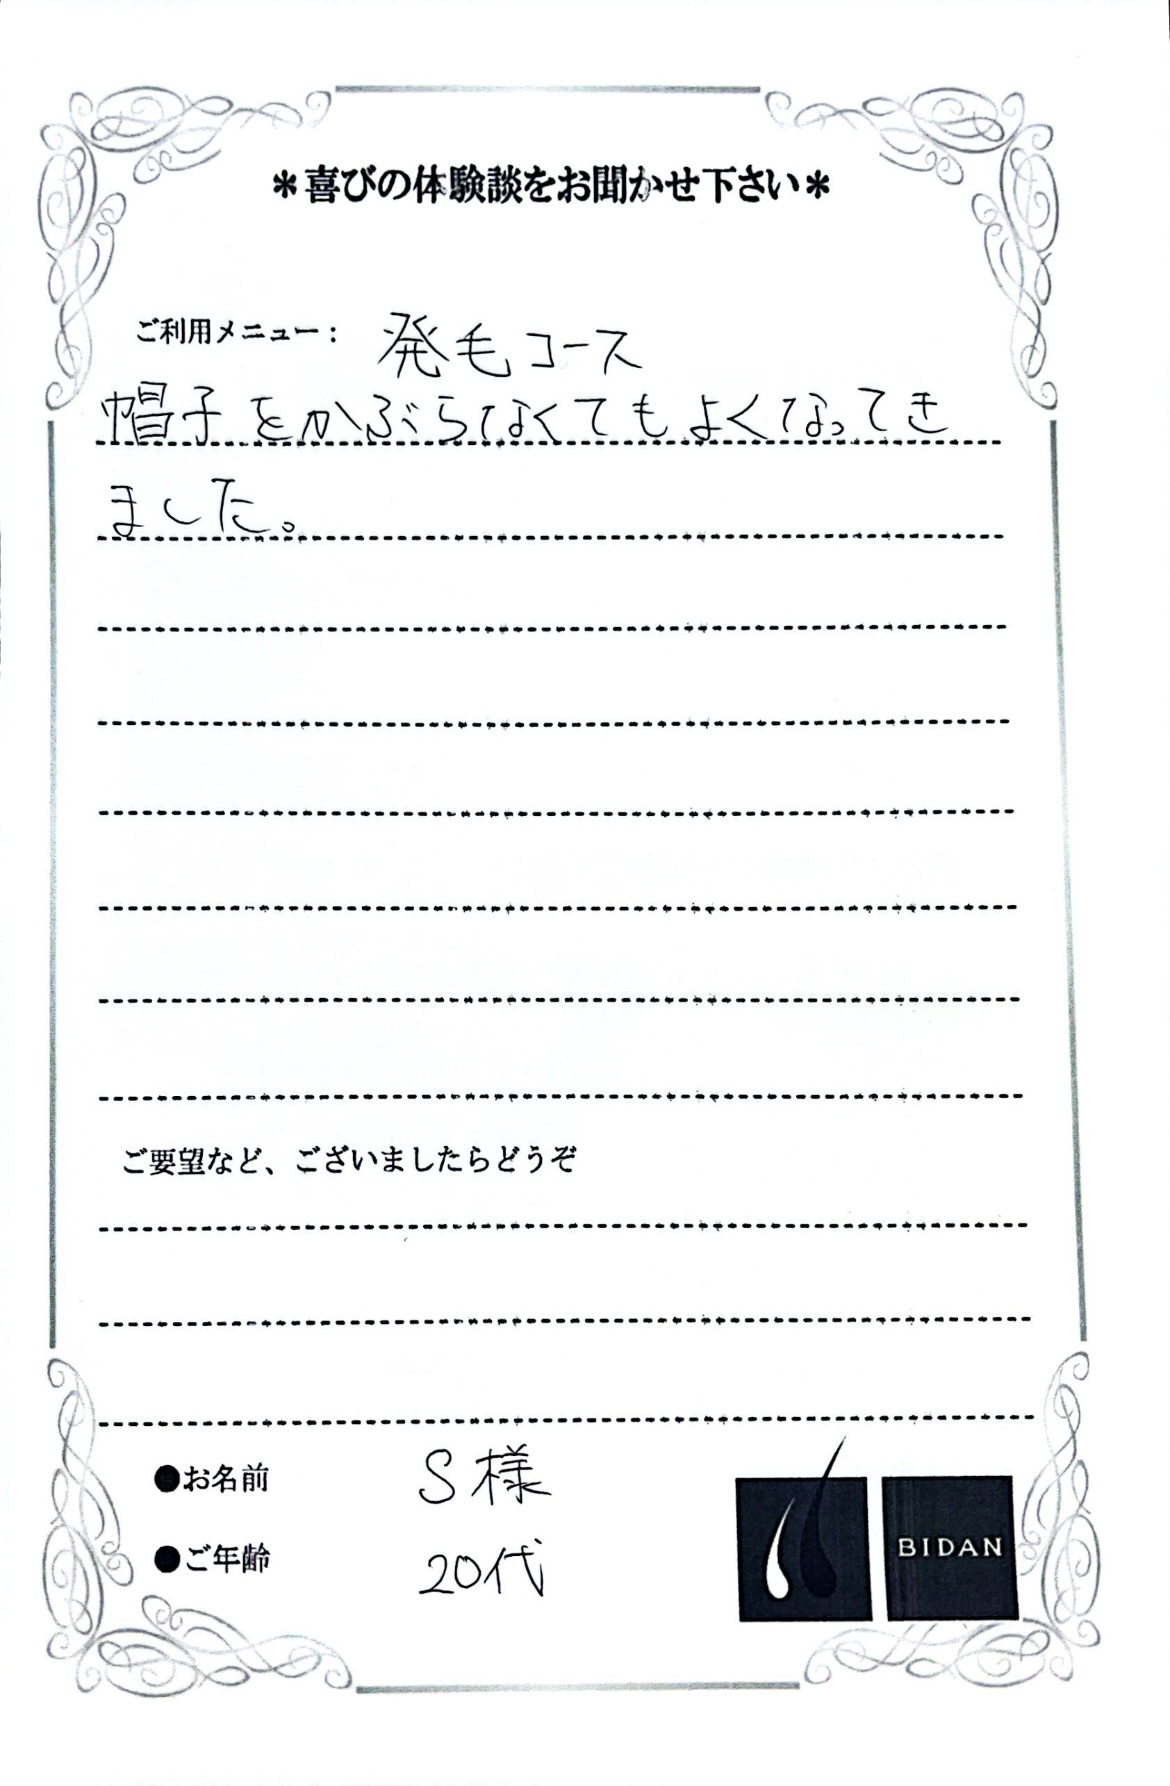 ＊喜びの体験談をお聞かせ下さい＊
ご利用メニュー： 発毛コース
帽子をかぶらなくてもよくなってき
ました。
ご要望など、ございましたらどうぞ
●お名前 S様
●ご年齢 20代
BIDAN